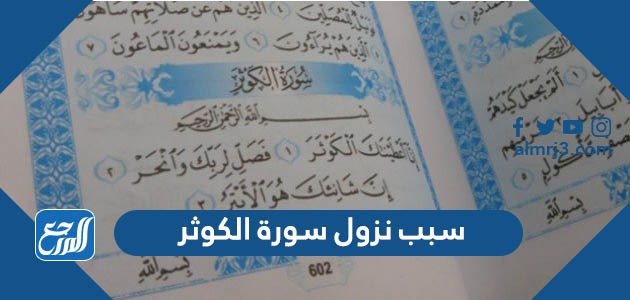 لِّلْمُصَلِّينَ الَّذِينَ هُمْ عَن صَلَاتِهِمْ سَاهُونَ
الَّذِينَ هُمْ يُرَاءُونَ ٦ وَيَمْنَعُونَ الْمَاعُونَ ٧
سُورَةُ الْكَوْثَرِ
بِسْمِ اللَّهِ الرَّحْمَٰنِ الرَّحِيمِ
إِنَّا أَعْطَيْنَٰكَ الْكَوْثَرَ ١ فَصَلِّ لِرَبِّكَ وَانْحَرْ ٢
إِنَّ شَانِئَكَ هُوَ الْأَبْتَرُ ٣
بِسْمِ اللَّهِ
602
أَلَمْ يَجْعَلْ كَيْدَهُمْ
أَبَابِيلَ
٥
بِسْمِ اللَّهِ
almrj3.com
سبب نزول سورة الكوثر
المرجع